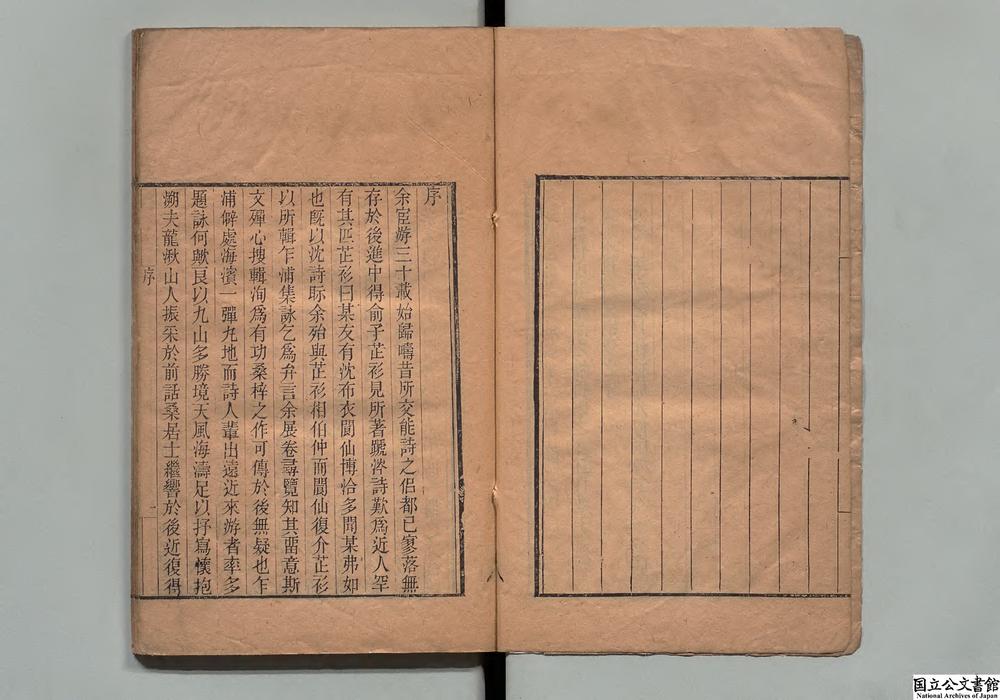 序
余宦游三十載始歸疇昔所交能詩之侣都已寥落無
存於後進中得俞子芷衫見所著蹏涔詩歎爲近人罕
有其匹芷衫曰某友有沈布衣閬仙博洽多聞某弗如
也旣以沈詩眎余殆與芷衫相伯仲而閬仙復介芷衫
以所輯乍浦集詠乞爲弁言余展卷尋覽知其畱意斯
文殫心搜輯洵爲有功桑梓之作可傳於後無疑也乍
浦僻處海濱一彈丸地而詩人輩出遠近來游者率多
題詠何歟良以九山多勝境天風海濤足以抒寫懷抱
溯夫龍湫山人振采於前話桑居士繼響於後近復得
序
一
国立公文書館
National Archives of Japan